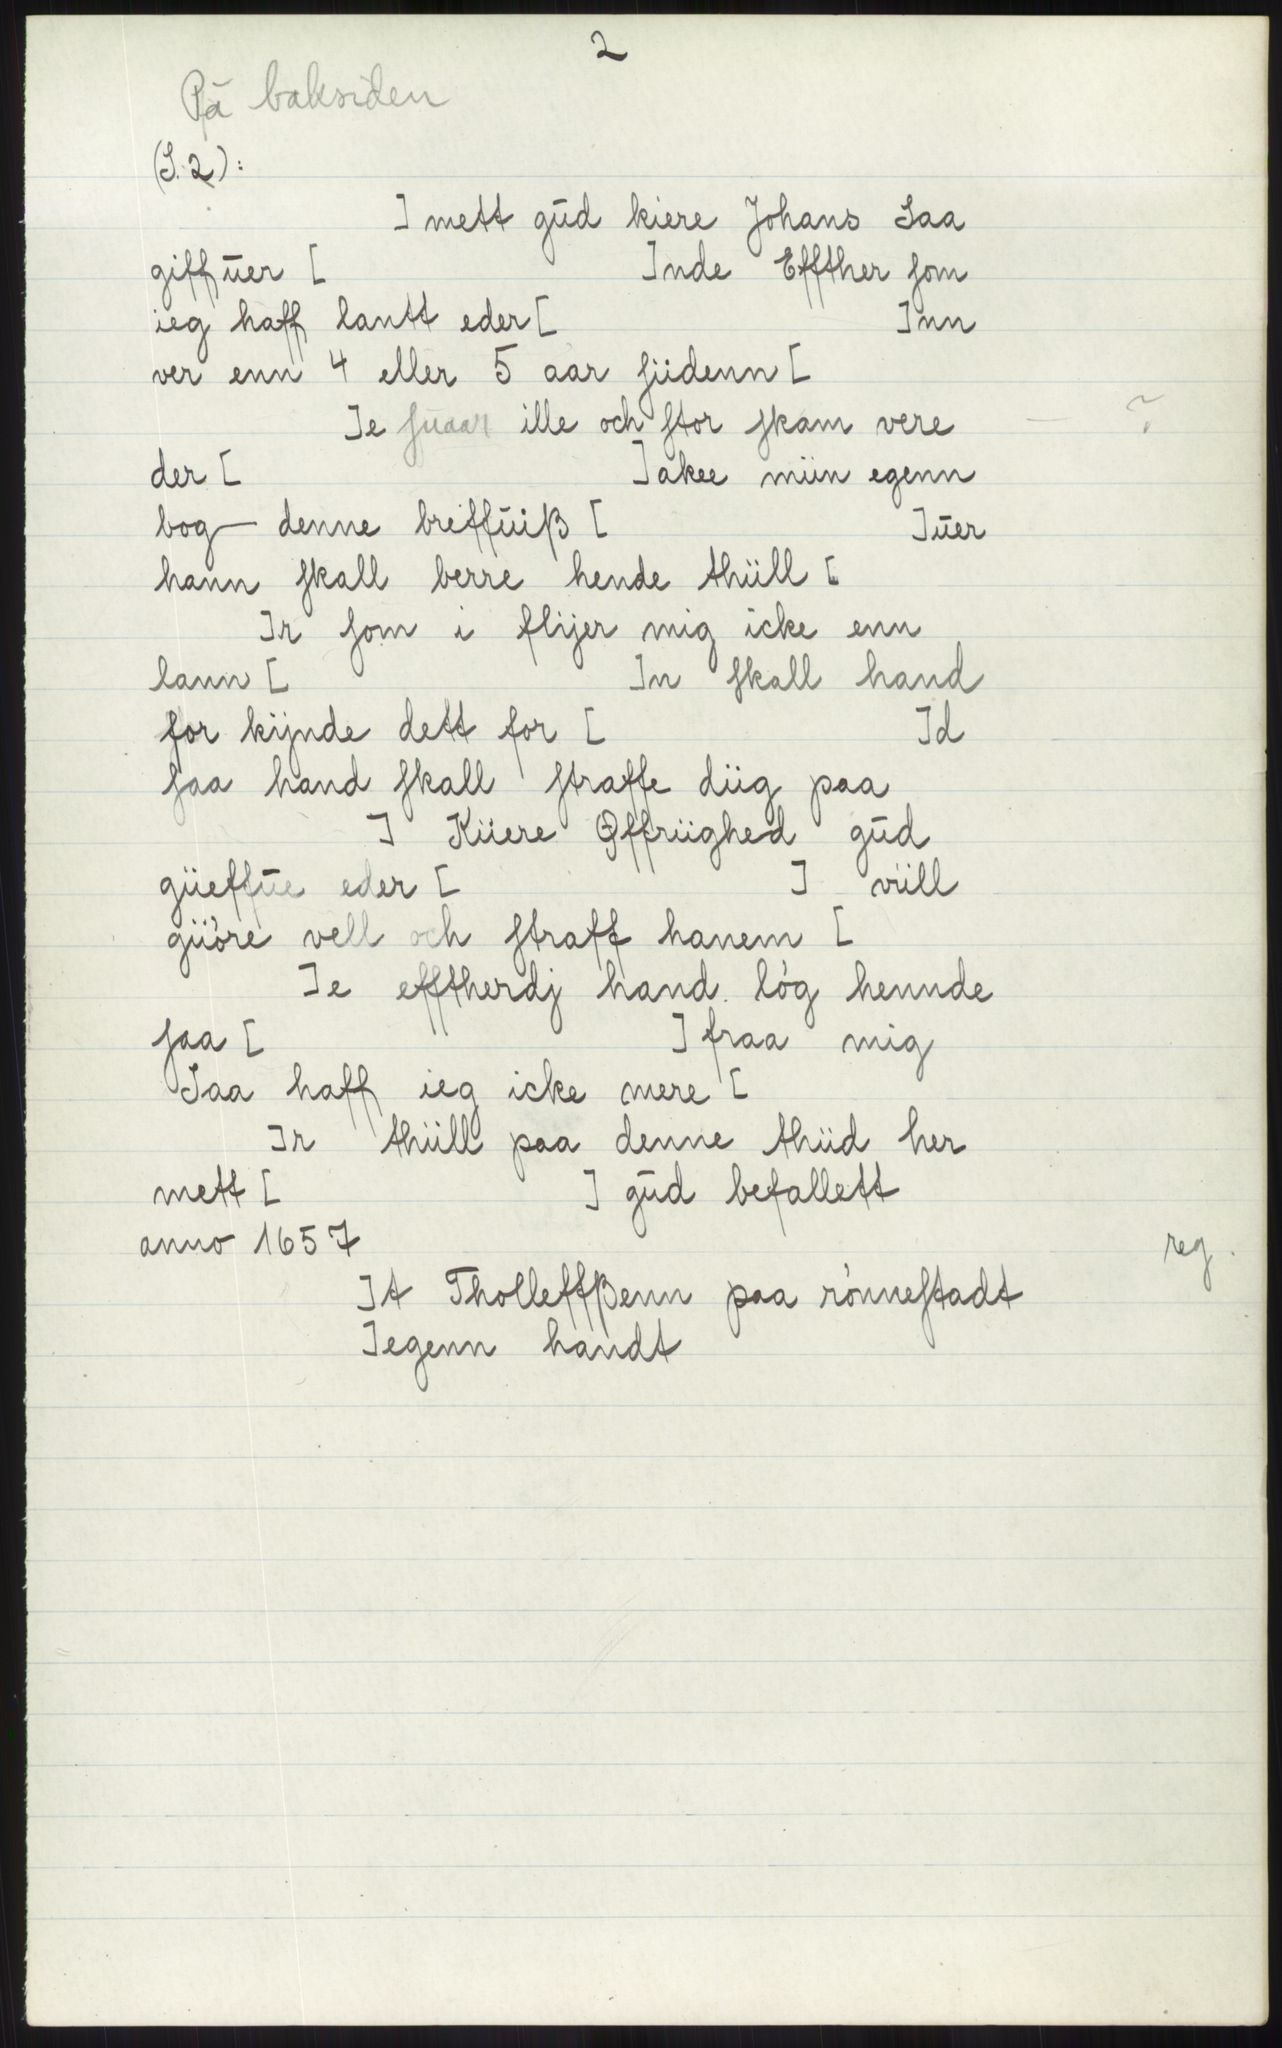 2
På baksiden
(S. 2):
] mett gūd kiere Johans Saa
giffūer [ ]nde Effther ſom
ieg haff lantt eder [ ]nn
ver enn 4 eller 5 aar ſiidenn [
]e ſuaar ille och ſtor ſkam vere ?
der [ ]akee miin egenn
bog denne breffūiß [ ]ūer
hann ſkall berre hende thiill [
]r ſom i flijer mig icke enn
lann [ ]n ſkall hand
for kijnde dett for [ ]d
ſaa hand ſkall ſtraffe diig paa
] Kiiere Øffriighed gūd
giieffūe eder [ ] viill
giióre vell och ſtraff hanem [
]e efftherdj hand lóg hennde
ſaa [ ] fraa mig
Saa haff ieg icke mere [
]r thiill paa denne thiid her
mett [ ] gūd befallett
anno 1657 reg.
]t Tholleffßenn paa rónneſtadt
]egenn handt